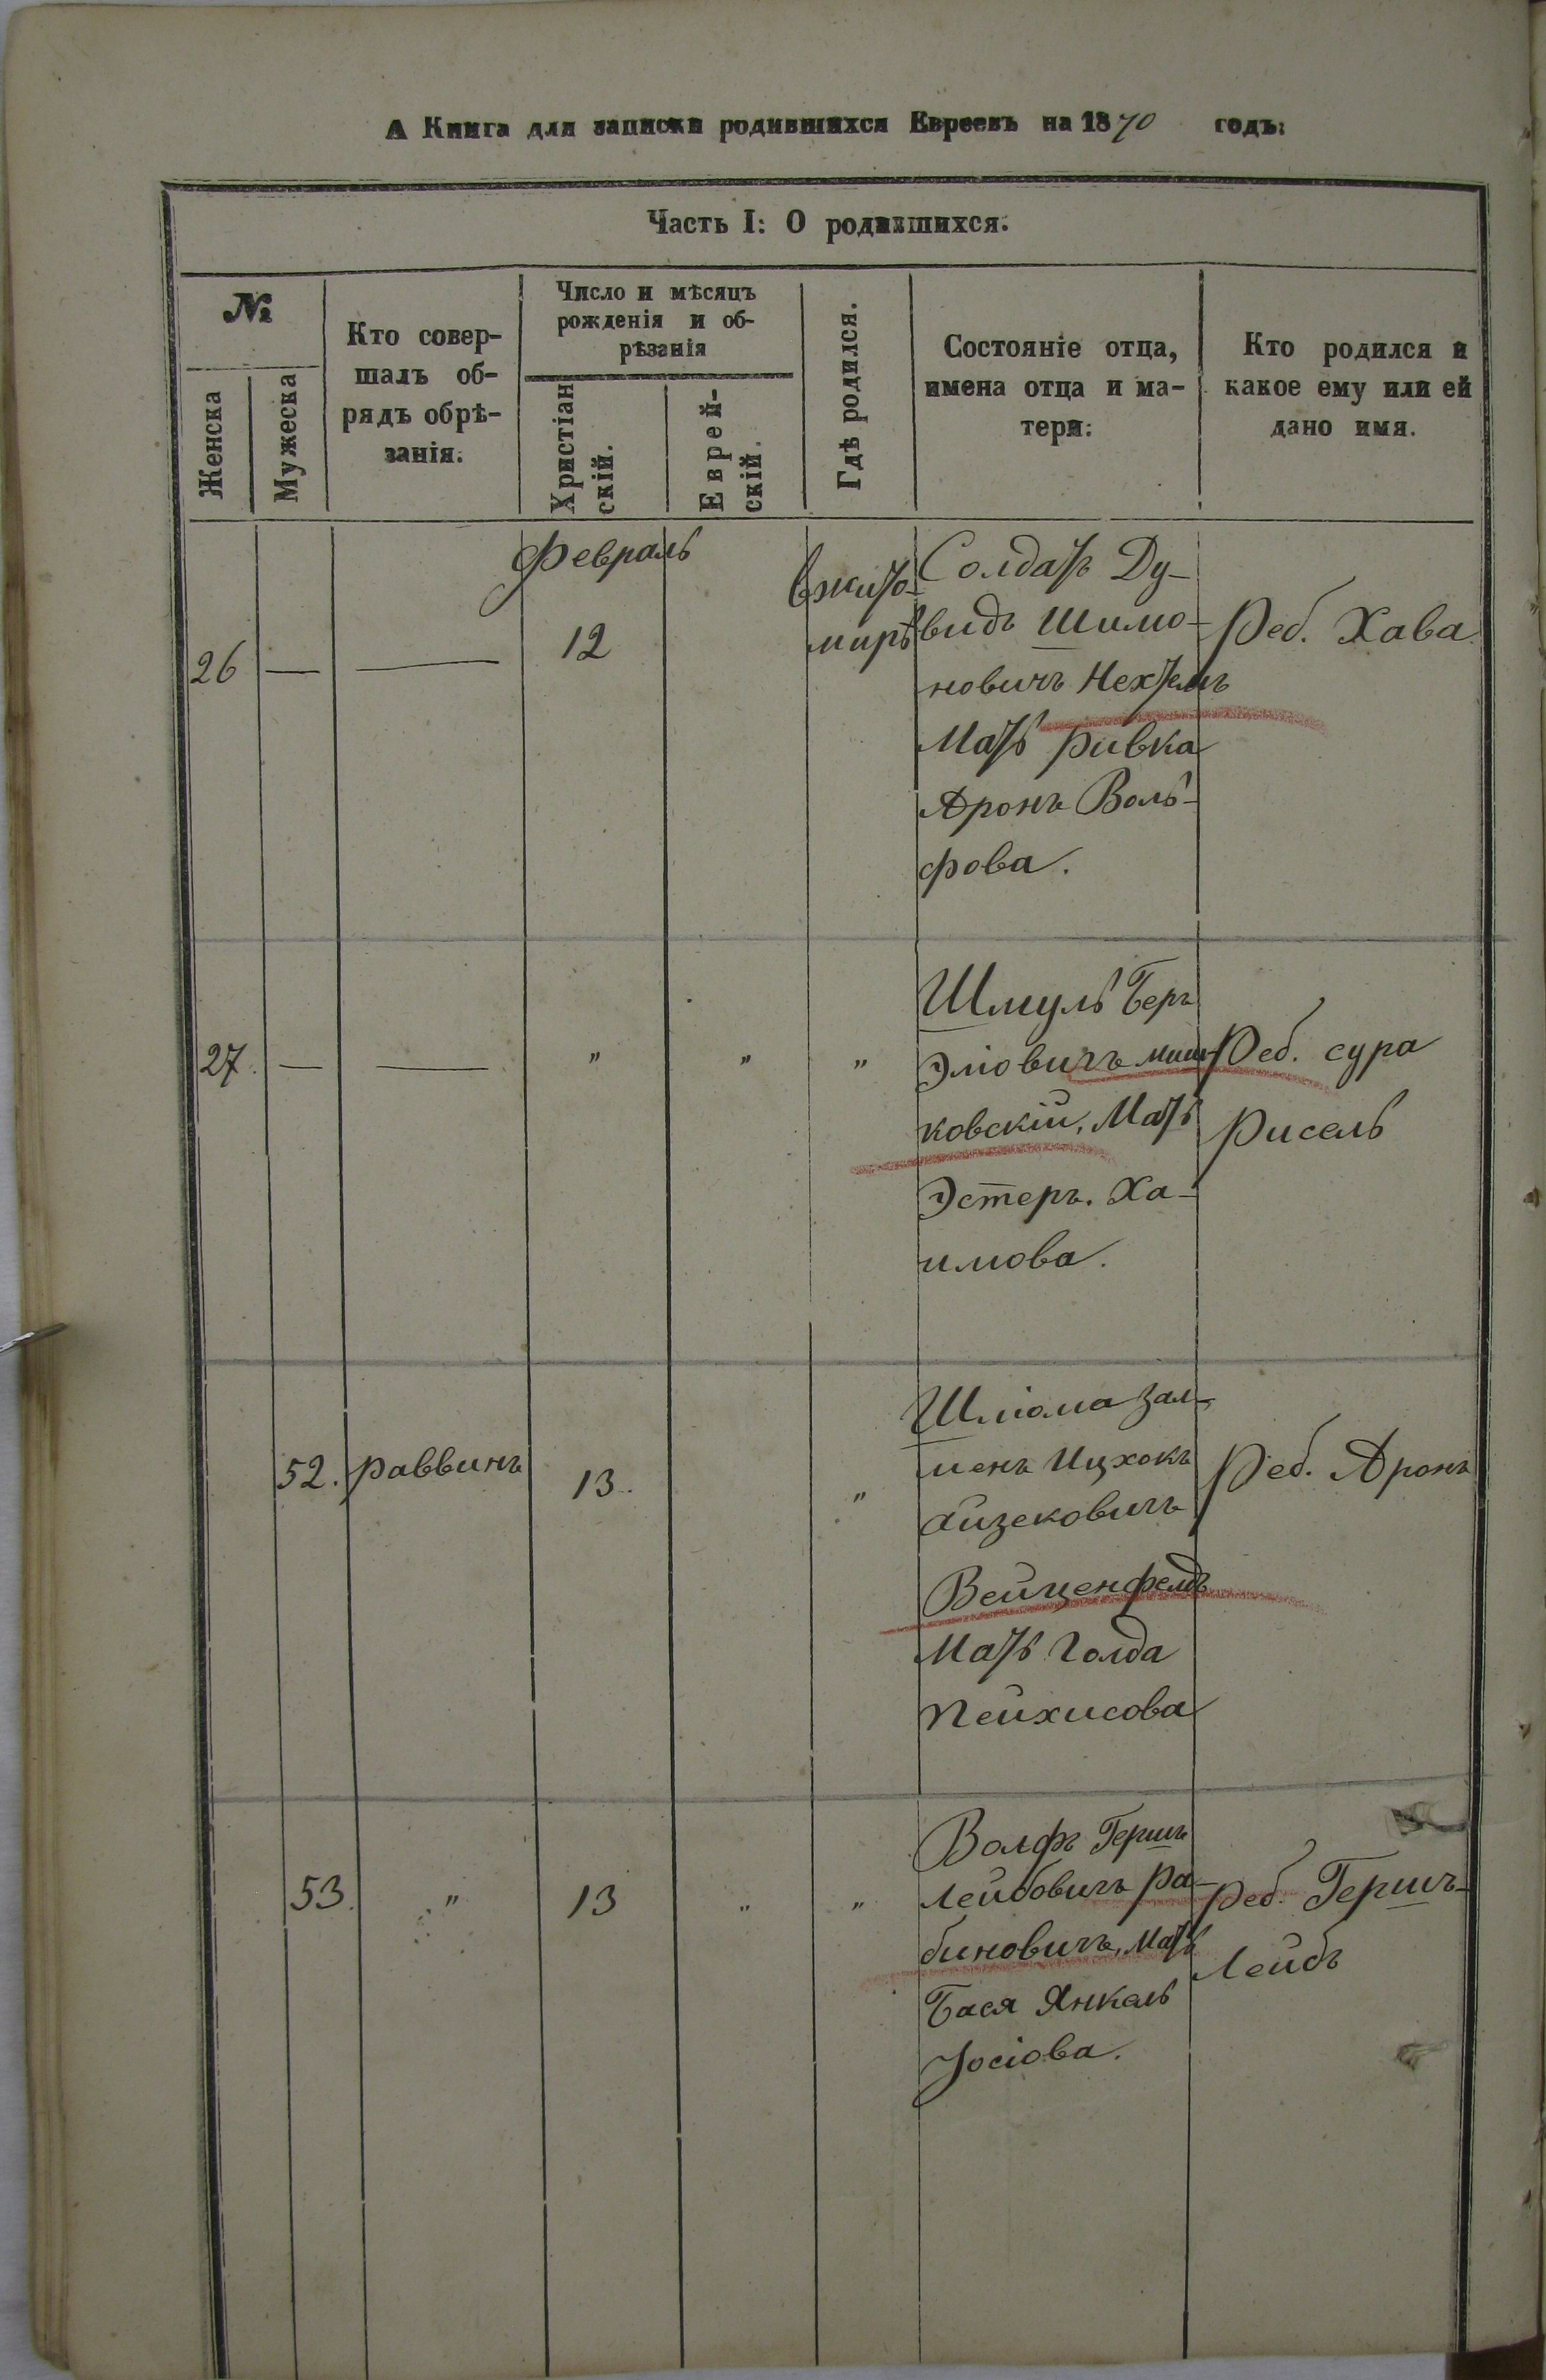 А Книга для записки родившихся Евреевъ на 1870 годъ:
Часть I: О родившихся.
№
Женска
Мужеска
Кто совер-
шалъ об-
рядъ обрѣ-
занія.
Число и мѣсяцъ
рожденія и об-
рѣзанія
Христіан
скій.
Еврей-
скій.
Гдѣ родился.
Состояніе отца,
имена отца и ма-
тери:
Кто родился и
какое ему или ей
дано имя.
26
—
—
Февраль
12
в жито-
мирѣ
Солдатъ Ду-
видъ Шимо-
новичъ
Мать Ривка
Аронъ Воль-
фова.
Реб. Хава
27.
—
—
"
"
"
Шмуль Беръ
Эліовичъ Миш-
ковскій, Мать
Эстеръ. Ха-
имова.
Реб. сура
Рисель
52.
раввинъ
13.
"
Шліома Зал-
менъ Ицхокъ
Айзековичъ
Вейценфелдъ
Мать Голда
Пейхисова
Реб. Аронъ
53.
"
13
"
"
Волфъ Гершъ
Лейбовичъ Ра-
биновичъ, Мать
Бася Янкель
Іосіова.
Реб. Гершъ-
Лейбъ